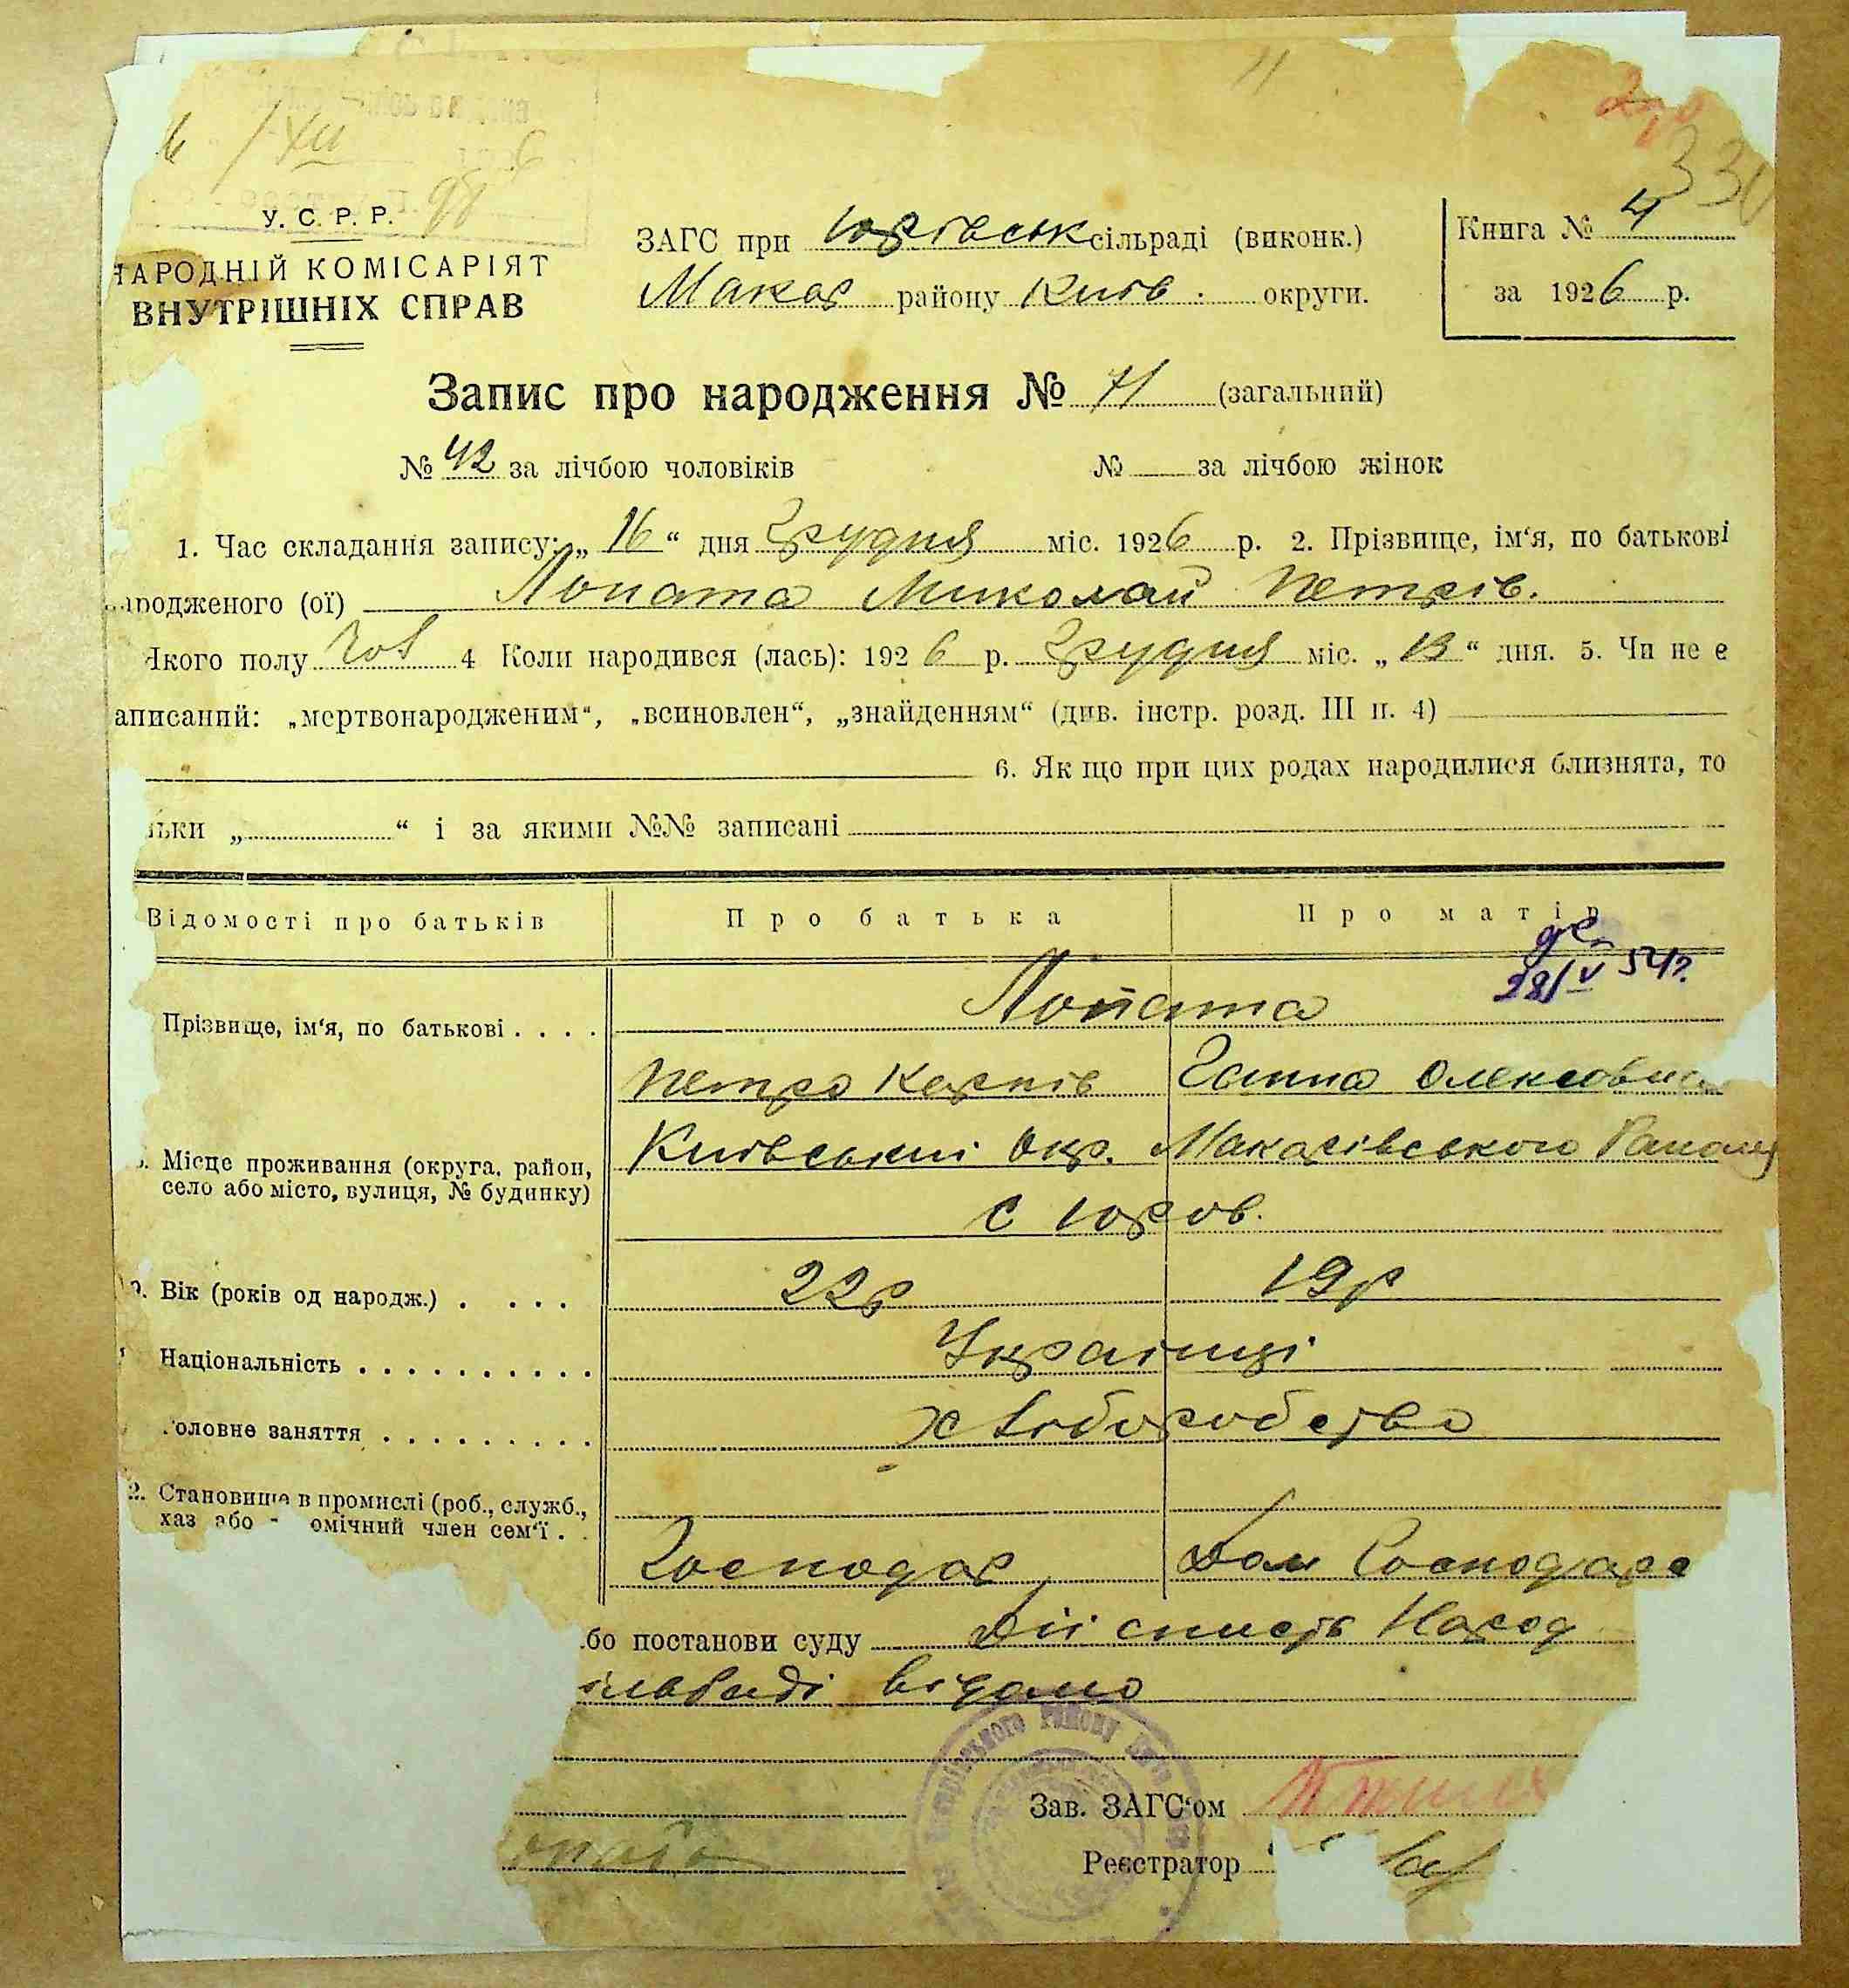 1/XII
330
У. С. Р. Р.
НАРОДНІЙ КОМІСАРІЯТ
ВНУТРІШНІХ СПРАВ
ЗАГС при Юрівськ сільраді (виконк.)
Макар району Київ. округи.
Книга № 4
за 1926 р.
Запис про народження № 71 (загальний)
№ 42 за лічбою чоловіків № за лічбою жінок
1. Час складання запису: „16“ дня Грудня міс. 1926 р. 2. Прізвище, ім‘я, по батькові
народженого (ої) Лопата Миколай Петрів.
Якого полу Чол 4 Коли народився (лась): 1926 р. Грудня міс. „13“ дня. 5. Чи не є
аписаний: „мертвонародженим“, „всиновлен“, „знайденням“ (див. інстр. розд. III п. 4)
6. Як що при цих родах народилися близнята, то
ільки „ “ і за якими №№ записані
Відомості про батьків Про батька Про матір
28/V 54г.
Прізвище, ім‘я, по батькові . . . . Лопата
Петро Карпів Ганна Олексовна
Місце проживання (округа, район, Київський Окр. Макарівського Району
село або місто, вулиця, № будинку)
с Юров.
9. Вік (років од народж.) . . . . 22р 19р
Національність . . . . . . . . . . Українці
оловне заняття . . . . . . . . . Хліборобство
2. Становище в промислі (роб., служб.,
хаз або омічний член сем‘ї . .
Господар Дом Господарс
бо постанови суду Дійсність Народ
ільраді відомо
Зав. ЗАГС‘ом
Реєстратор